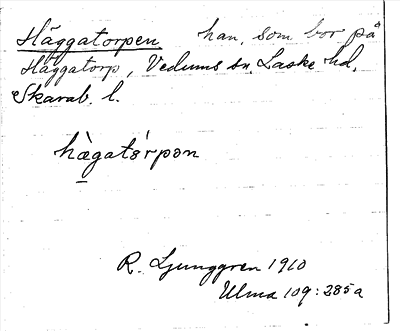 Häggatorpen han, som bor på
Häggatorp, Vedums sn. Laske hd.
Skarab. l.
hæ̀gatórpən
R. Ljunggren 1910
Ulma 109:285a